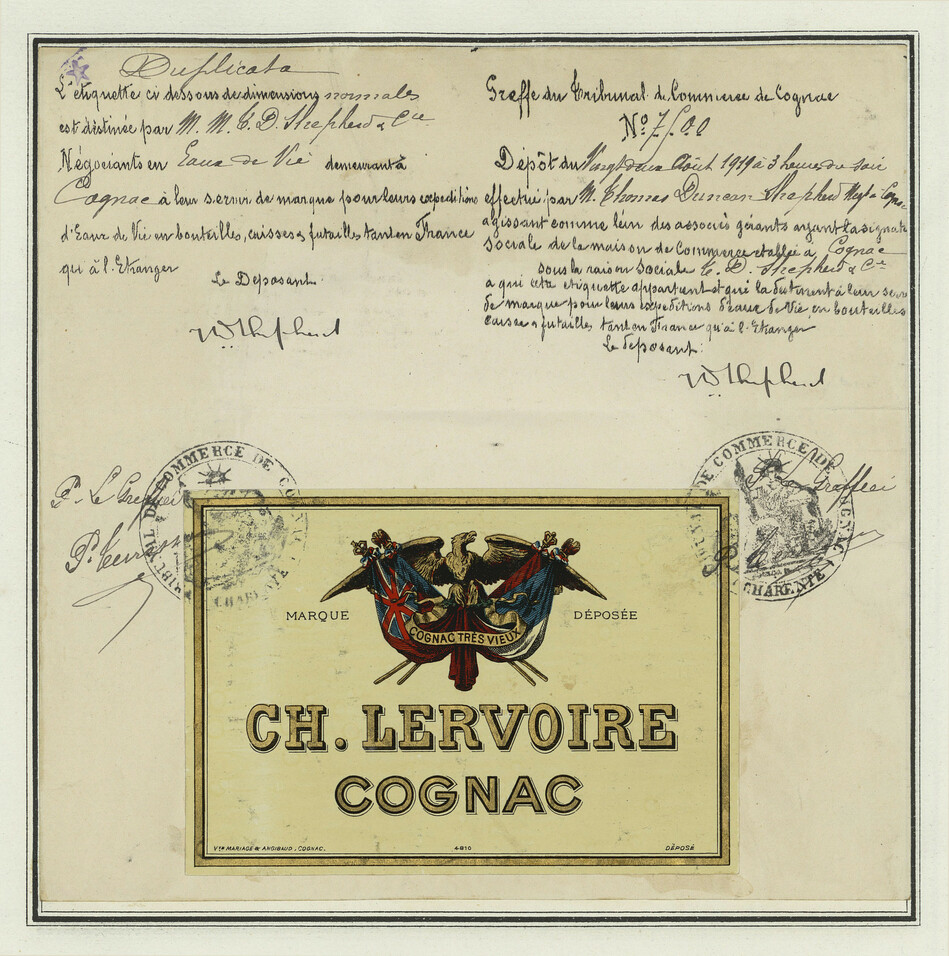 Duplicata
L'étiquette ci dessous de dimensions normales
est destinée par M. M. T. D. Shepherd & Cie
Négociants en Eaux de Vie demeurant à
Cognac à leur servir de marque pour leurs expeditions
d'Eaux de Vie en bouteilles, caisses & futailles tant en France
qui à l'Etranger
Le Deposant.
Shepherd
Greffe du Tribunal de Commerce de Cognac
No
Dépôt du Vingt deux Août 1919 à 3 heures du soir
effectué par M. Thomas Duncan Shepherd Negt à Cognac
agissant comme l'un des associés gérants ayant la signate
sociale de la maison de Commerce etablie à Cognac
sous la raison Sociale T. D. Shepherd & Cie
a qui cette etiquette appartient et qui la destinent à leur servir
de marque pour leurs expeditions d'eaux de Vie, en bouteilles
caisses & futailles tant en France qu'à l'Etranger
Le deposant:
Shepherd
P. Le Greffier
TRIBUNAL DE COMMERCE DE COGNAC
CHARENTE
TRIBUNAL DE COMMERCE DE COGNAC
CHARENTE
MARQUE DÉPOSÉE
COGNAC TRÈS VIEUX
CH. LERVOIRE
COGNAC
Vve MARIAGE & ANGIBAUD, COGNAC. 4-810 DÉPOSÉ